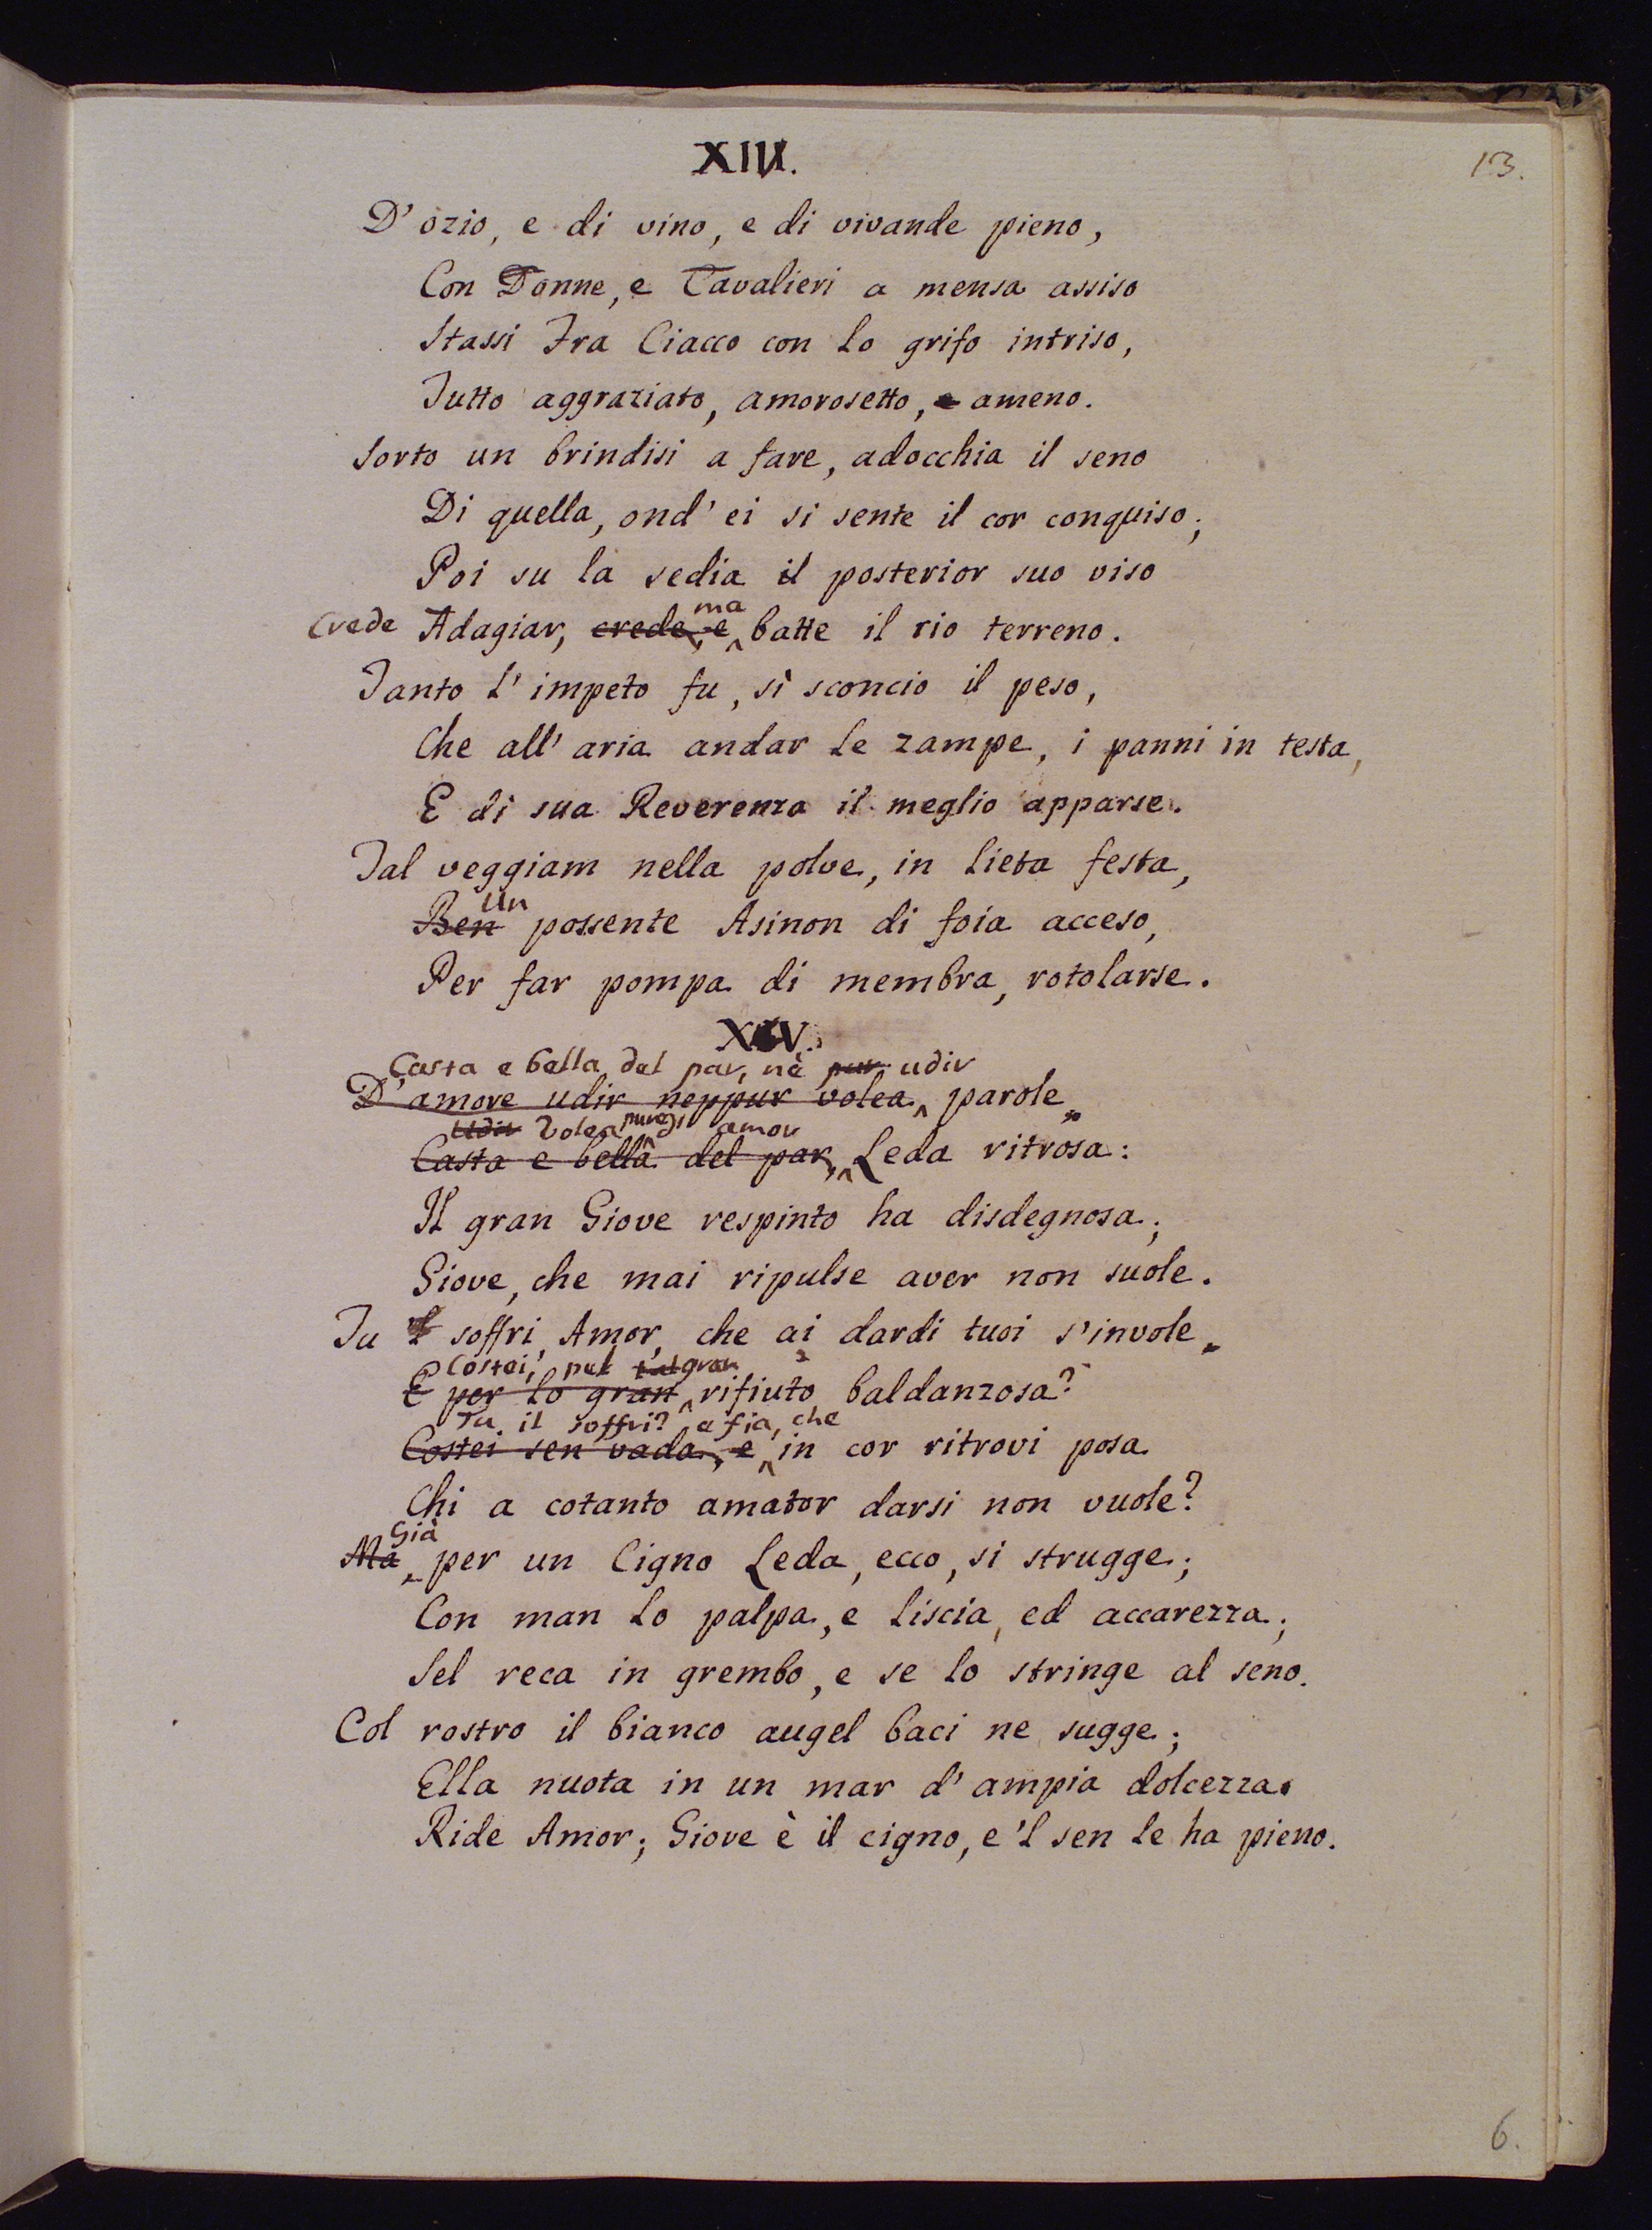 XIV.
13.
D'ozio, e di vino, e di vivande pieno,
Con Donne, e Cavalieri a mensa assiso
Stassi Fra Ciacco con lo grifo intriso,
Tutto aggraziato, amorosetto, e ameno.
Sorto un brindisi a fare, adocchia il seno
Di quella, ond'ei si sente il cor conquiso;
Poi su la sedia il posterior suo viso
ma
Crede Adagiar, crede, e batte il rio terreno.
Tanto l'impeto fu, sì sconcio il peso,
Che all'aria andar le zampe, i panni in testa,
E di sua Reverenza il meglio apparse.
Tal veggiam nella polve, in lieta festa,
Un
Ben possente Asinon di foia accesо,
Per far pompa di membra, rotolarse.
XV.
Casta e bella del par, nè pur udir
D'amore udir neppur volea parole
Udir Volea pure di amor
Casta e bella del par, Leda ritrosa:
Il gran Giove respinto ha disdegnosa;
Giove, che mai ripulse aver non suole.
Tu soffri, Amor, che ai dardi tuoi s'invole
Costei, pel gran
E per lo gran rifiuto baldanzosa?
Tu il soffri? e fia, che
Costei sen vada, e in cor ritrovi posa
Chi a cotanto amator darsi non vuole?
Già
Ma per un Cigno Leda, ecco, si strugge;
Con man lo palpa, e liscia, ed accarezza;
Sel reca in grembo, e se lo stringe al seno.
Col rostro il bianco augel baci ne sugge;
Ella nuota in un mar d'ampia dolcezza.
Ride Amor; Giove è il cigno, e 'l sen le ha pieno.
6.